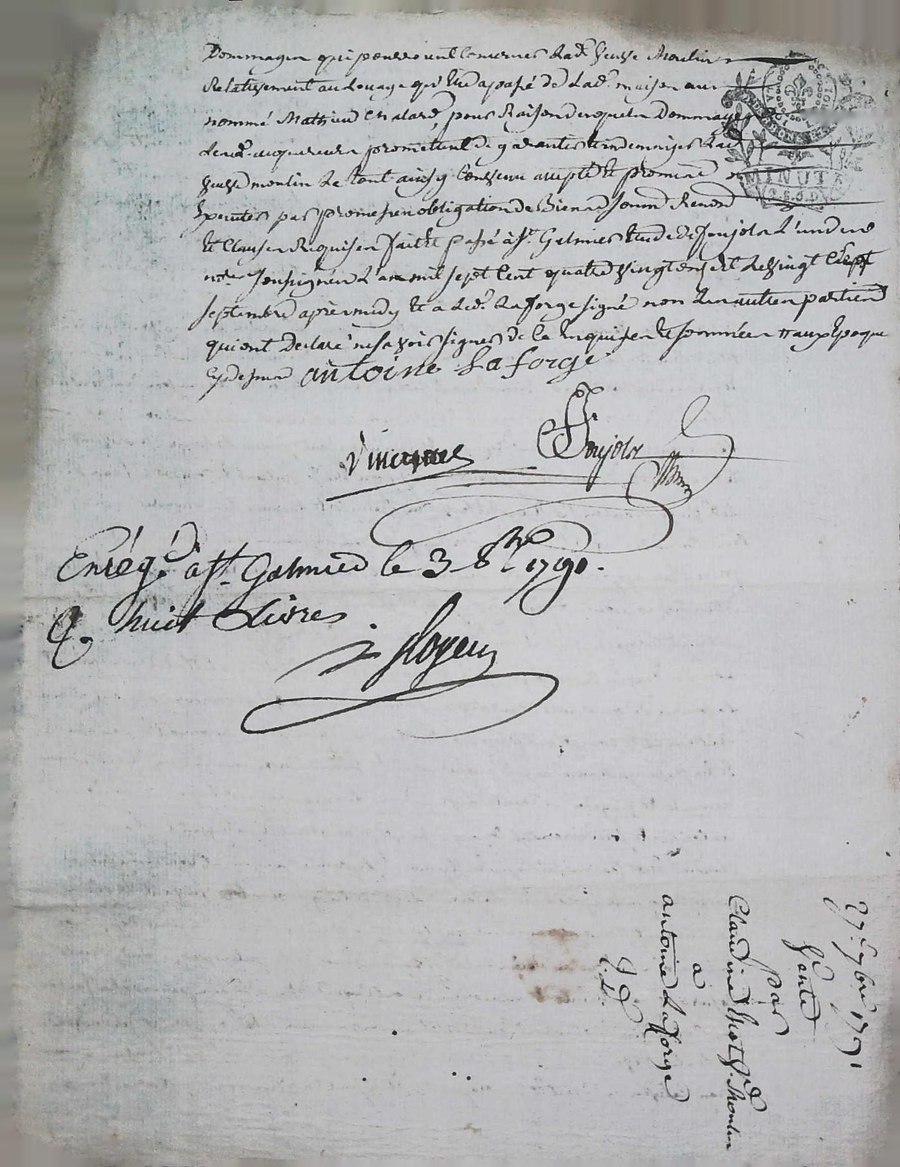 Dommages qui pourroient concerner lad. veuve Moulin
Relativement au Louage qu'elle a passé de Lad. maison au
nommé Mathieu Chalard, pour Raison desquels Dommages
led. acquereur promettent de garantir et indemniser Lad.
veuve moulin Le tout ainsy convenu accepté et promis
Executer par promesses obligation de Biens Soum. Renon.
et Clauses Requises fait et passé à St. Galmier Etude de Soujols L'un des
nres. Soussignés L'an mil sept Cent quatre vingt onze et le vingt sept
septembre après midy et a Led. Laforge signé non Les autres parties
qui ont Declaré ne savoir signer de ce Enquises et sommées
antoine Laforge
Soujols
Enrégé. à St. Galmier le 3 8bre 1791.
R. huit Livres
27 7bre 1791
Vente
par
Claudine ve. Moulin
à
antoine Laforge